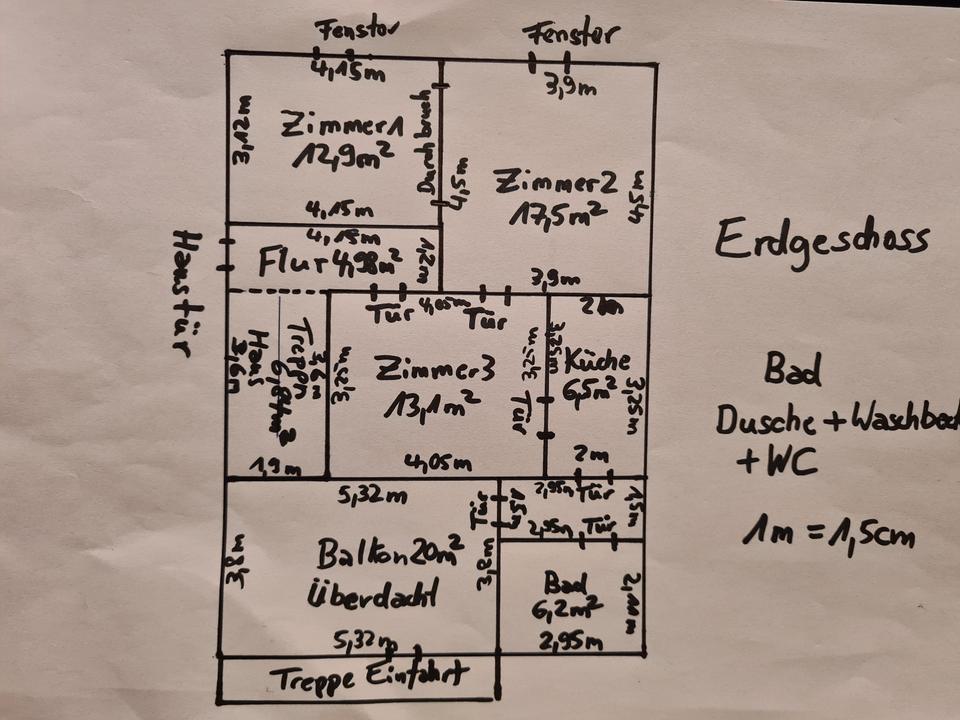 Fenster
Fenster
4,15m
3,9m
3,12m
Zimmer1
12,9m²
Durchbruch
4,5m
Zimmer2
17,5m²
4,5m
4,15m
4,15m
Flur 4,98m²
1,2m
3,9m
Haustür
Erdgeschoss
Tür
4,05m
Tür
2m
Treppn
Haus
6,84m²
3,6m
3,6m
3,25m
Zimmer3
13,1m²
3,25m
Tür
3,25m
Küche
6,5m²
3,25m
1,9m
4,05m
2m
Bad
Dusche + Waschbeck
+ WC
1m = 1,5cm
5,32m
Tür
1,5m
2,95m
Tür
1,5m
2,95m
Tür
3,8m
Balkon 20m²
Überdacht
3,8m
Bad
6,2m²
2,11m
5,32m
2,95m
Treppe Einfahrt